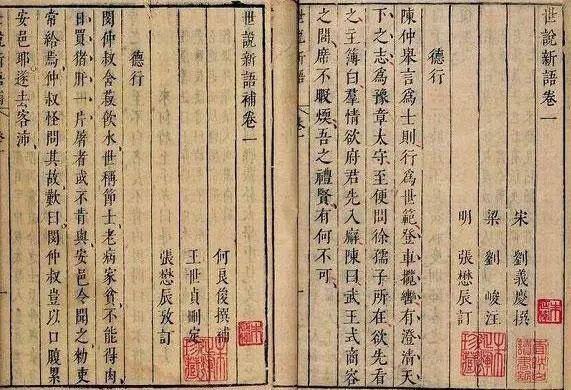 世說新語卷一
宋 劉義慶撰
梁 劉峻注
明 張懋辰訂
德行
陳仲舉言為士則行為世範登車攬轡有澄清天
下之志為豫章太守至便問徐孺子所在欲先看
之主簿白羣情欲府君先入廨陳曰武王式商容
之閭席不暇煗吾之禮賢有何不可
世說新語 卷一
世說新語補卷一
何良俊撰補
王世貞刪定
張懋辰攷訂
德行
閔仲叔含菽飲水世稱節士老病家貧不能得肉
日買猪肝一片屠者或不肯與安邑令聞之勑吏
常給焉仲叔怪問其故歎曰閔仲叔豈以口腹累
安邑耶遂去客沛
世說新語補 卷一